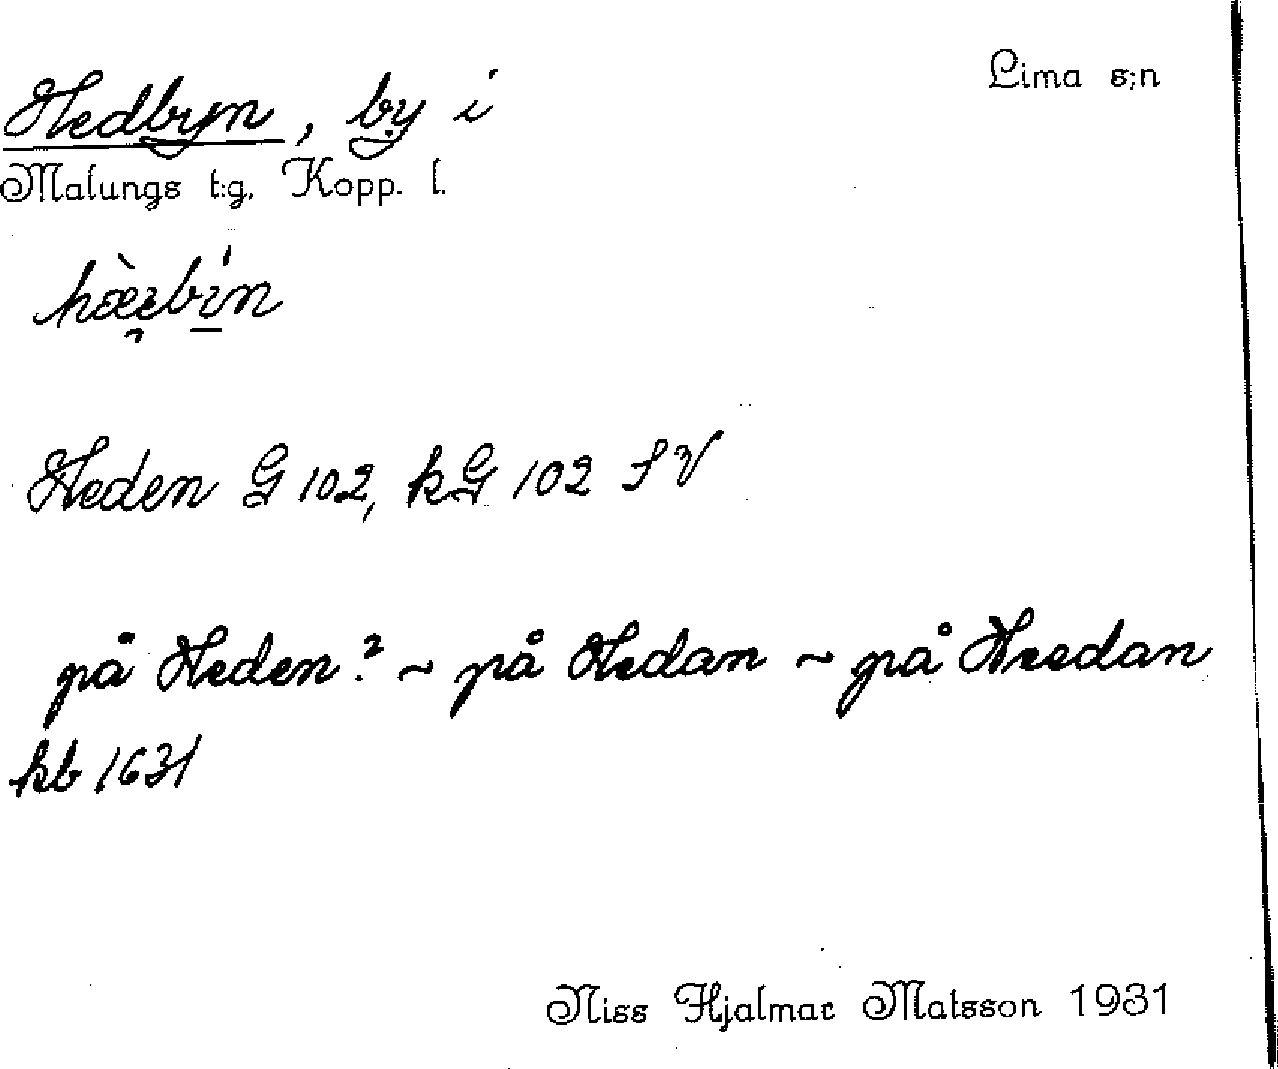 Lima s:n
Hedbyn, by i
Malungs t:g. Kopp. l.
Heden G 102, kG 102 SV
på Heden? ~ på Hedan ~ på Heedan
kb 1631
Niss Hjalmar Matsson 1931